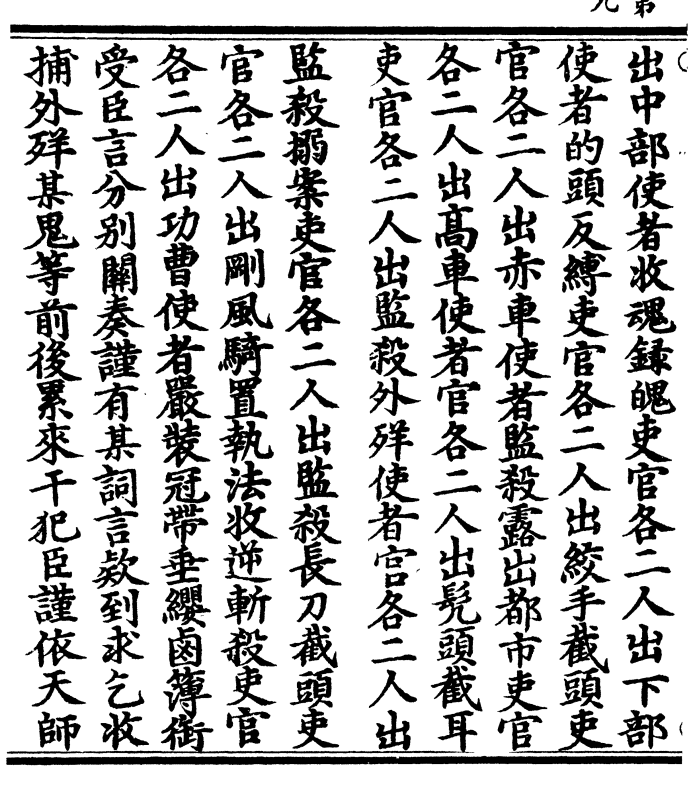 出中部使者收魂録魄吏官各二人出下部
使者的頭反縛吏官各二人出絞手截頭吏
官各二人出赤車使者監殺露出都市吏官
各二人出髙車使者官各二人出髠頭截耳
吏官各二人出監殺外殍使者官各二人出
監殺搦案吏官各二人出監殺長刀截頭吏
官各二人出剛風騎置執法收逆斬殺吏官
各二人出功曹使者嚴裝冠帶垂纓鹵簿銜
受臣言分别關奏謹有某詞言欵到求乞收
捕外殍某鬼等前後累來干犯臣謹依天師